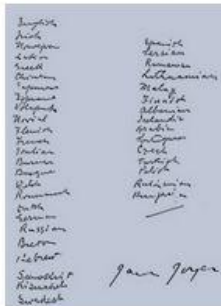 English
Irish
Norwegian
Latin
Greek
Chinese
Japanese
Esperanto
Volapük
Novial
Flemish
French
Italian
Basque
Dutch
German
Russian
Breton
Hebrew
Sanskrit
Swedish
Spanish
Persian
Rumanian
Lithuanian
Malay
Finnish
Albanian
Icelandic
Arabic
Portuguese
Czech
Turkish
Polish
Ruthenian
Hungarian
James Joyce